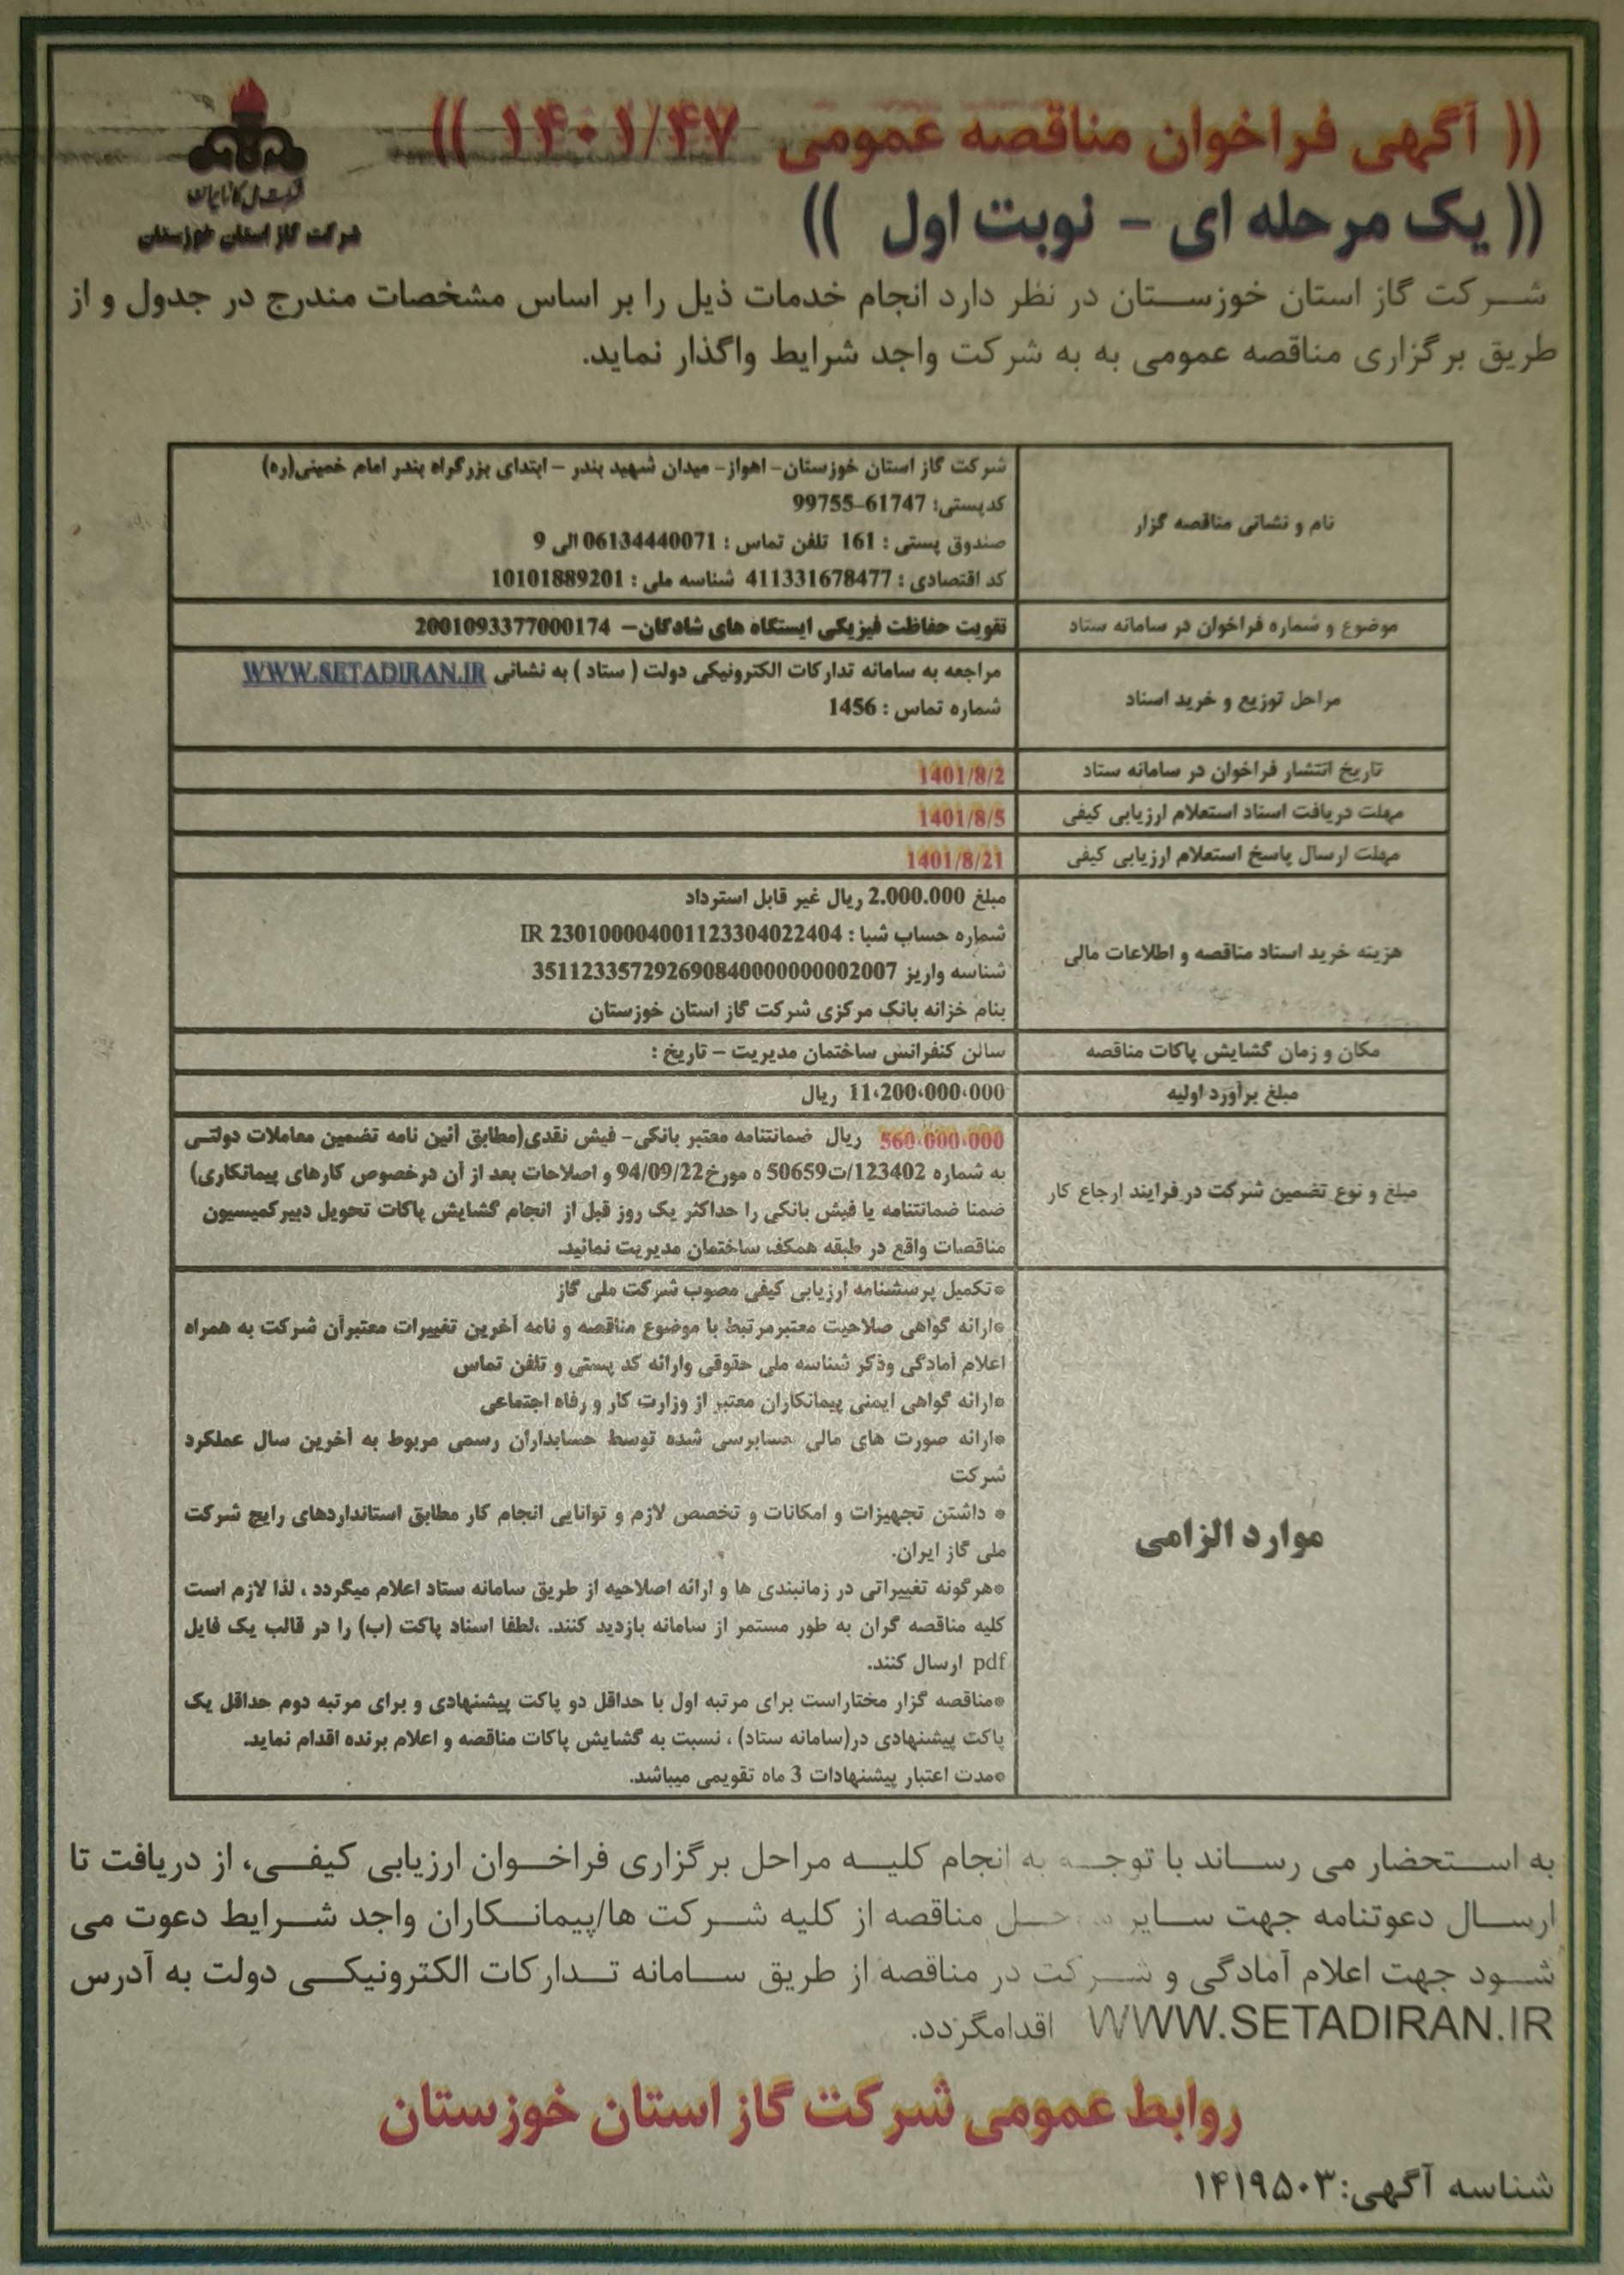 (( آگهی فراخوان مناقصه عمومی ۱۴۰۱/۴۷ ))
(( یک مرحله ای - نوبت اول ))
شرکت ملی گاز ایران
شرکت گاز استان خوزستان
شرکت گاز استان خوزستان در نظر دارد انجام خدمات ذیل را بر اساس مشخصات مندرج در جدول و از
طریق برگزاری مناقصه عمومی به به شرکت واجد شرایط واگذار نماید.
نام و نشانی مناقصه گزار
شرکت گاز استان خوزستان- اهواز- میدان شهید بندر – ابتدای بزرگراه بندر امام خمینی(ره)
کدپستی: 61747-99755
صندوق پستی : 161 تلفن تماس : 06134440071 الی 9
کد اقتصادی : 411331678477 شناسه ملی : 10101889201
موضوع و شماره فراخوان در سامانه ستاد
تقویت حفاظت فیزیکی ایستگاه های شادگان– 2001093377000174
مراحل توزیع و خرید اسناد
مراجعه به سامانه تدارکات الکترونیکی دولت ( ستاد ) به نشانی WWW.SETADIRAN.IR
شماره تماس : 1456
تاریخ انتشار فراخوان در سامانه ستاد
1401/8/2
مهلت دریافت اسناد استعلام ارزیابی کیفی
1401/8/5
مهلت ارسال پاسخ استعلام ارزیابی کیفی
1401/8/21
هزینه خرید اسناد مناقصه و اطلاعات مالی
مبلغ 2.000.000 ریال غیر قابل استرداد
شماره حساب شبا : IR 230100004001123304022404
شناسه واریز 351123357292690840000000002007
بنام خزانه بانک مرکزی شرکت گاز استان خوزستان
مکان و زمان گشایش پاکات مناقصه
سالن کنفرانس ساختمان مدیریت – تاریخ :
مبلغ برآورد اولیه
11،200،000،000 ریال
مبلغ و نوع تضمین شرکت در فرایند ارجاع کار
560،000،000 ریال ضمانتنامه معتبر بانکی- فیش نقدی(مطابق آئین نامه تضمین معاملات دولتی
به شماره 123402/ت50659 ه مورخ94/09/22 و اصلاحات بعد از آن درخصوص کارهای پیمانکاری)
ضمنا ضمانتنامه یا فیش بانکی را حداکثر یک روز قبل از انجام گشایش پاکات تحویل دبیرکمیسیون
مناقصات واقع در طبقه همکف ساختمان مدیریت نمائید.
موارد الزامی
*تکمیل پرسشنامه ارزیابی کیفی مصوب شرکت ملی گاز
*ارائه گواهی صلاحیت معتبرمرتبط با موضوع مناقصه و نامه آخرین تغییرات معتبرآن شرکت به همراه
اعلام آمادگی وذکر شناسه ملی حقوقی وارائه کد پستی و تلفن تماس
*ارائه گواهی ایمنی پیمانکاران معتبر از وزارت کار و رفاه اجتماعی
*ارائه صورت های مالی حسابرسی شده توسط حسابداران رسمی مربوط به آخرین سال عملکرد
شرکت
* داشتن تجهیزات و امکانات و تخصص لازم و توانایی انجام کار مطابق استانداردهای رایج شرکت
ملی گاز ایران.
*هرگونه تغییراتی در زمانبندی ها و ارائه اصلاحیه از طریق سامانه ستاد اعلام میگردد ، لذا لازم است
کلیه مناقصه گران به طور مستمر از سامانه بازدید کنند. ،لطفا اسناد پاکت (ب) را در قالب یک فایل
pdf ارسال کنند.
*مناقصه گزار مختاراست برای مرتبه اول با حداقل دو پاکت پیشنهادی و برای مرتبه دوم حداقل یک
پاکت پیشنهادی در(سامانه ستاد) ، نسبت به گشایش پاکات مناقصه و اعلام برنده اقدام نماید.
*مدت اعتبار پیشنهادات 3 ماه تقویمی میباشد.
به استحضار می رساند با توجه به انجام کلیه مراحل برگزاری فراخوان ارزیابی کیفی، از دریافت تا
ارسال دعوتنامه جهت سایر مناقصه از کلیه شرکت ها/پیمانکاران واجد شرایط دعوت می
شود جهت اعلام آمادگی و شرکت در مناقصه از طریق سامانه تدارکات الکترونیکی دولت به آدرس
WWW.SETADIRAN.IR اقدامگردد.
روابط عمومی شرکت گاز استان خوزستان
شناسه آگهی:۱۴۱۹۵۰۳